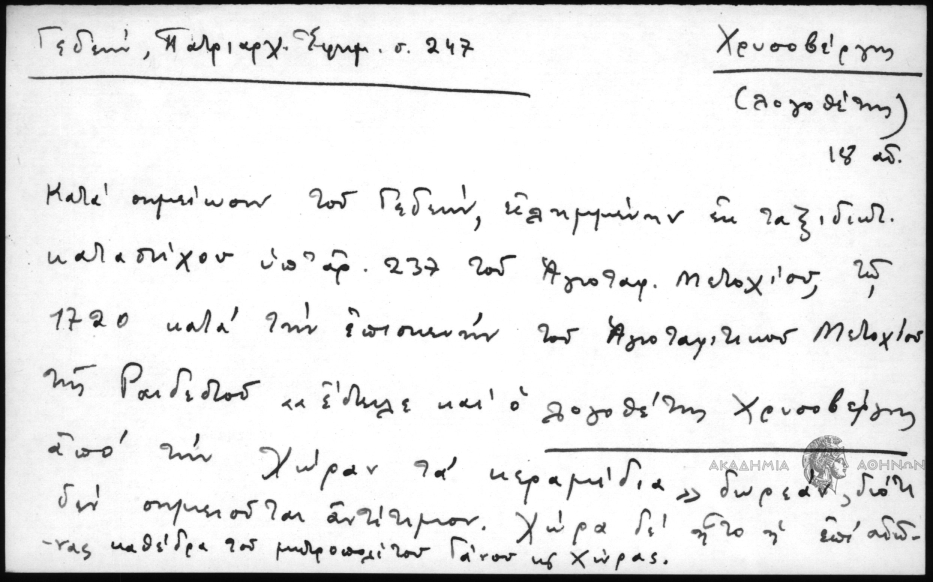 Γεδεών, Πατριαρχ. Ἐφημ. σ. 247
Χρυσοβέργης
(λογοθέτης)
18 αἰ.
Κατά σημείωσιν τοῦ Γεδεών, εἰλημμένην ἐκ ταξιδιωτ.
καταστίχου ὑπ' ἀρ. 237 τοῦ Ἁγιοταφ. Μετοχίου, τῷ
1720 κατά τήν ἐπισκευήν τοῦ Ἁγιοταφιτικοῦ Μετοχίου
τῆς Ραιδεστοῦ «ἔστειλε καί ὁ λογοθέτης Χρυσοβέργης
ἀπό τήν Χώραν τά κεραμίδια» δωρεάν, διότι
δέν σημειοῦται ἀντίτιμον. Χώρα δέ ἦτο ἡ ἐπί αἰῶ-
νας καθέδρα τοῦ μητροπολίτου Γάνου κ Χώρας.
ΑΚΑΔΗΜΙΑ ΑΘΗΝΩΝ